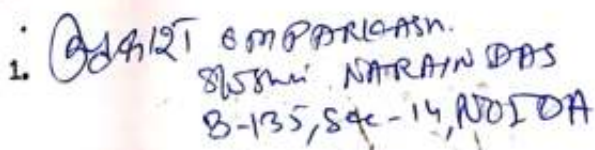 1. OM PARKASH.
S/o Shri NARAIN DAS
B-135, Sec-14, NOIDA